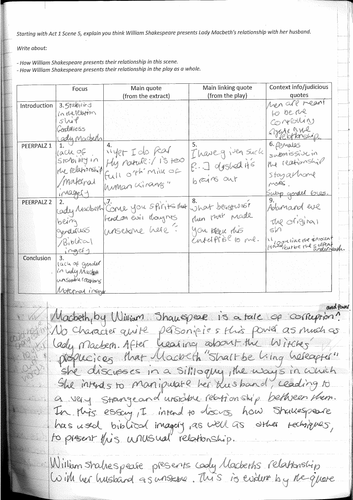 Starting with Act 1 Scene 5, explain you think William Shakespeare presents Lady Macbeth's relationship with her husband.
Write about:
- How William Shakespeare presents their relationship in this scene.
- How William Shakespeare presents their relationship in the play as a whole.
Focus
Main quote
(from the extract)
Main linking quote
(from the play)
Context info/judicious
quotes
Introduction
3. Stability
in relation
ship
Lady Macbeth
men are meant
to be the
controlling
relationship
PEERPALZ 1
1.
lack of
stability in
the relationship
/maternal
imagery
4.
"Yet I do fear
thy nature; / is too
full o'th' milk of
human kindness"
5.
I have given suck
[...] dashed its
brains out
6. females
submissive in
the relationship
Stay at home
mothers
PEERPALZ 2
2.
Lady Macbeth
being
genderless
/Biblical
imagery
7.
Come you spirits that
unsexme here"
8.
What beast was't
then that made
you break this
enterprise to me.
9.
Adam and eve
the original
sin
Conclusion
3.
lack of gender
in Lady Macbeth
unstable relations
Maternal image
Macbeth, by William Shakespeare is a tale of corruption^
and power
No character quite personifies this power as much as
Lady Macbeth. After hearing about the Witches'
prophecies that Macbeth "Shalt be king hereafter"
she discusses in a soliloquy, the ways in which
She intends to manipulate her husband, leading to
a very strange and unstable relationship between them.
In this essay, I intend to discuss how Shakespeare
has used biblical imagery, as well as other techniques,
to present this unusual relationship.
William Shakespeare presents Lady Macbeth's relationship
with her husband as unstable. This is evident by the quote